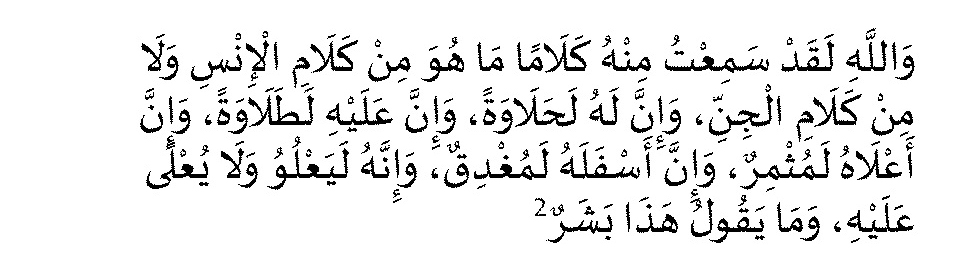 وَاللَّهِ لَقَدْ سَمِعْتُ مِنْهُ كَلَامًا مَا هُوَ مِنْ كَلَامِ الْإِنْسِ وَلَا
مِنْ كَلَامِ الْجِنِّ، وَإِنَّ لَهُ لَحَلَاوَةً، وَإِنَّ عَلَيْهِ لَطَلَاوَةً، وَإِنَّ
أَعْلَاهُ لَمُثْمِرٌ، وَإِنَّ أَسْفَلَهُ لَمُغْدِقٌ، وَإِنَّهُ لَيَعْلُوُ وَلَا يُعْلَى
عَلَيْهِ، وَمَا يَقُولُ هَذَا بَشَرٌ2